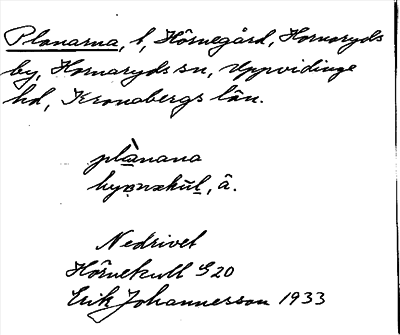 Planarna, l, Hörnegård, Hornaryds
by, Hornaryds sn, Uppvidinge
hd, Kronobergs län.
plànana
Nedrivet
Hörnekull S20
Erik Johannesson 1933